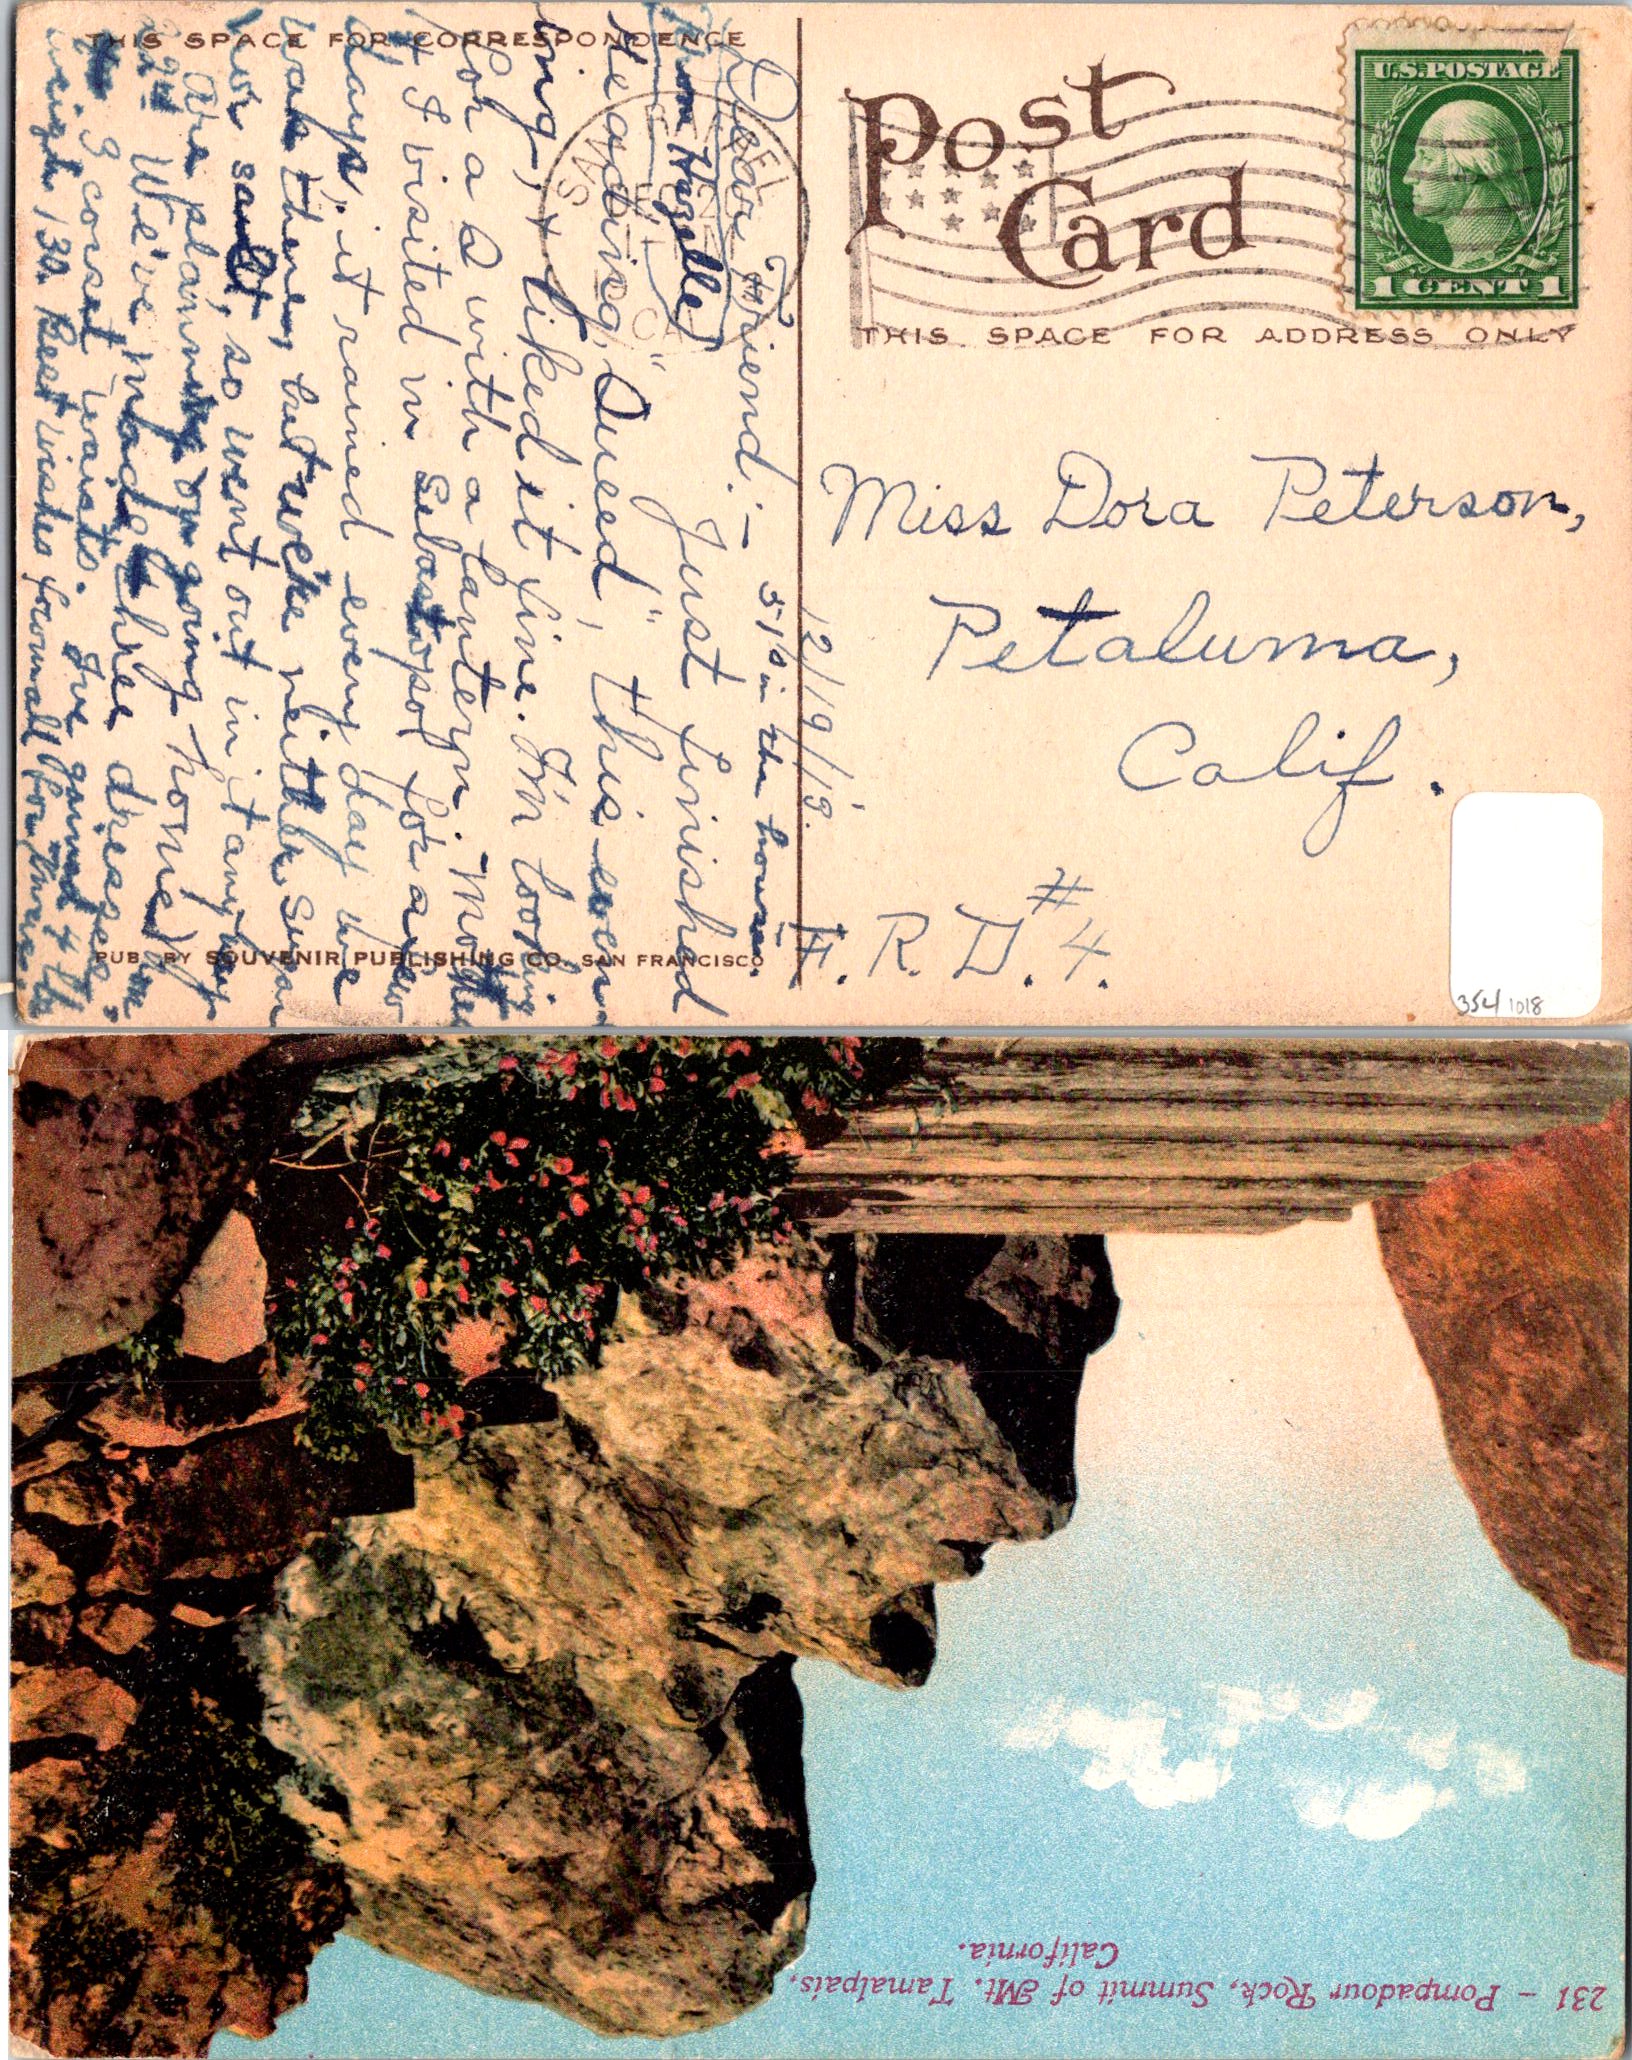 THIS SPACE FOR CORRESPONDENCE
Post
Card
U.S. POSTAGE
1 CENT 1
THIS SPACE FOR ADDRESS ONLY
Miss Dora Peterson,
Petaluma,
Calif.
F. R. D. #4.
12/19/'13.
51° in the house.
Dear Friend:—
Just finished
reading, "Queed", this even-
ing, + liked it fine. I'm looking
for a S with a lantern. Mother
+ I visited in Sebastopol for a few
days, it rained every day we
were there, but we like neither Svan
nor sand, so went out in it anyway
Are planning on going home
22nd We've made three dresses,
3 corset waists. I've gained 4 lbs
weigh 130. Best wishes from all for
From Hazelle
PUB. BY SOUVENIR PUBLISHING CO. SAN FRANCISCO
354/1018
231 – Pompadour Rock, Summit of Mt. Tamalpais,
California.